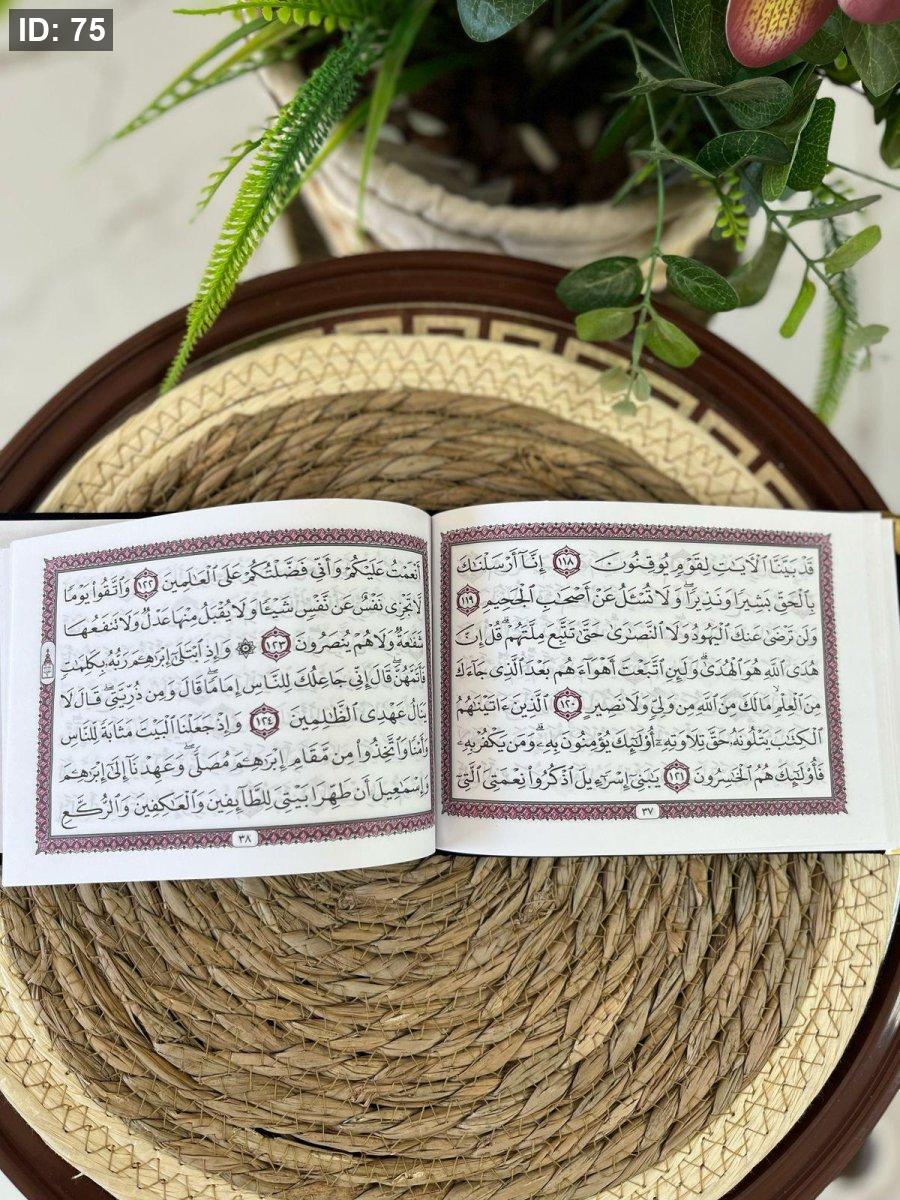 ID: 75
قَدْ بَيَّنَّا ٱلْأٓيَٰتِ لِقَوْمٍ يُوقِنُونَ ١١٨ إِنَّآ أَرْسَلْنَٰكَ
بِٱلْحَقِّ بَشِيرًا وَنَذِيرًا ۖ وَلَا تُسْـَٔلُ عَنْ أَصْحَٰبِ ٱلْجَحِيمِ ١١٩
وَلَن تَرْضَىٰ عَنكَ ٱلْيَهُودُ وَلَا ٱلنَّصَٰرَىٰ حَتَّىٰ تَتَّبِعَ مِلَّتَهُمْ ۗ قُلْ إِنَّ
هُدَى ٱللَّهِ هُوَ ٱلْهُدَىٰ ۗ وَلَئِنِ ٱتَّبَعْتَ أَهْوَآءَهُم بَعْدَ ٱلَّذِى جَآءَكَ
مِنَ ٱلْعِلْمِ ۙ مَا لَكَ مِنَ ٱللَّهِ مِن وَلِىٍّ وَلَا نَصِيرٍ ١٢٠ ٱلَّذِينَ ءَاتَيْنَٰهُمُ
ٱلْكِتَٰبَ يَتْلُونَهُۥ حَقَّ تِلَاوَتِهِۦٓ أُو۟لَٰٓئِكَ يُؤْمِنُونَ بِهِۦ ۗ وَمَن يَكْفُرْ بِهِۦ
فَأُو۟لَٰٓئِكَ هُمُ ٱلْخَٰسِرُونَ ١٢١ يَٰبَنِىٓ إِسْرَٰٓءِيلَ ٱذْكُرُوا۟ نِعْمَتِىَ ٱلَّتِىٓ
٣٧
أَنْعَمْتُ عَلَيْكُمْ وَأَنِّى فَضَّلْتُكُمْ عَلَى ٱلْعَٰلَمِينَ ١٢٢ وَٱتَّقُوا۟ يَوْمًا
لَّا تَجْزِى نَفْسٌ عَن نَّفْسٍ شَيْـًٔا وَلَا يُقْبَلُ مِنْهَا عَدْلٌ وَلَا تَنفَعُهَا
شَفَٰعَةٌ وَلَا هُمْ يُنصَرُونَ ١٢٣ ۞ وَإِذِ ٱبْتَلَىٰٓ إِبْرَٰهِـۧمَ رَبُّهُۥ بِكَلِمَٰتٍ
فَأَتَمَّهُنَّ ۖ قَالَ إِنِّى جَاعِلُكَ لِلنَّاسِ إِمَامًا ۖ قَالَ وَمِن ذُرِّيَّتِى ۖ قَالَ لَا
يَنَالُ عَهْدِى ٱلظَّٰلِمِينَ ١٢٤ وَإِذْ جَعَلْنَا ٱلْبَيْتَ مَثَابَةً لِّلنَّاسِ
وَأَمْنًا وَٱتَّخِذُوا۟ مِن مَّقَامِ إِبْرَٰهِـۧمَ مُصَلًّى ۖ وَعَهِدْنَآ إِلَىٰٓ إِبْرَٰهِـۧمَ
وَإِسْمَٰعِيلَ أَن طَهِّرَا بَيْتِىَ لِلطَّآئِفِينَ وَٱلْعَٰكِفِينَ وَٱلرُّكَّعِ
٣٨